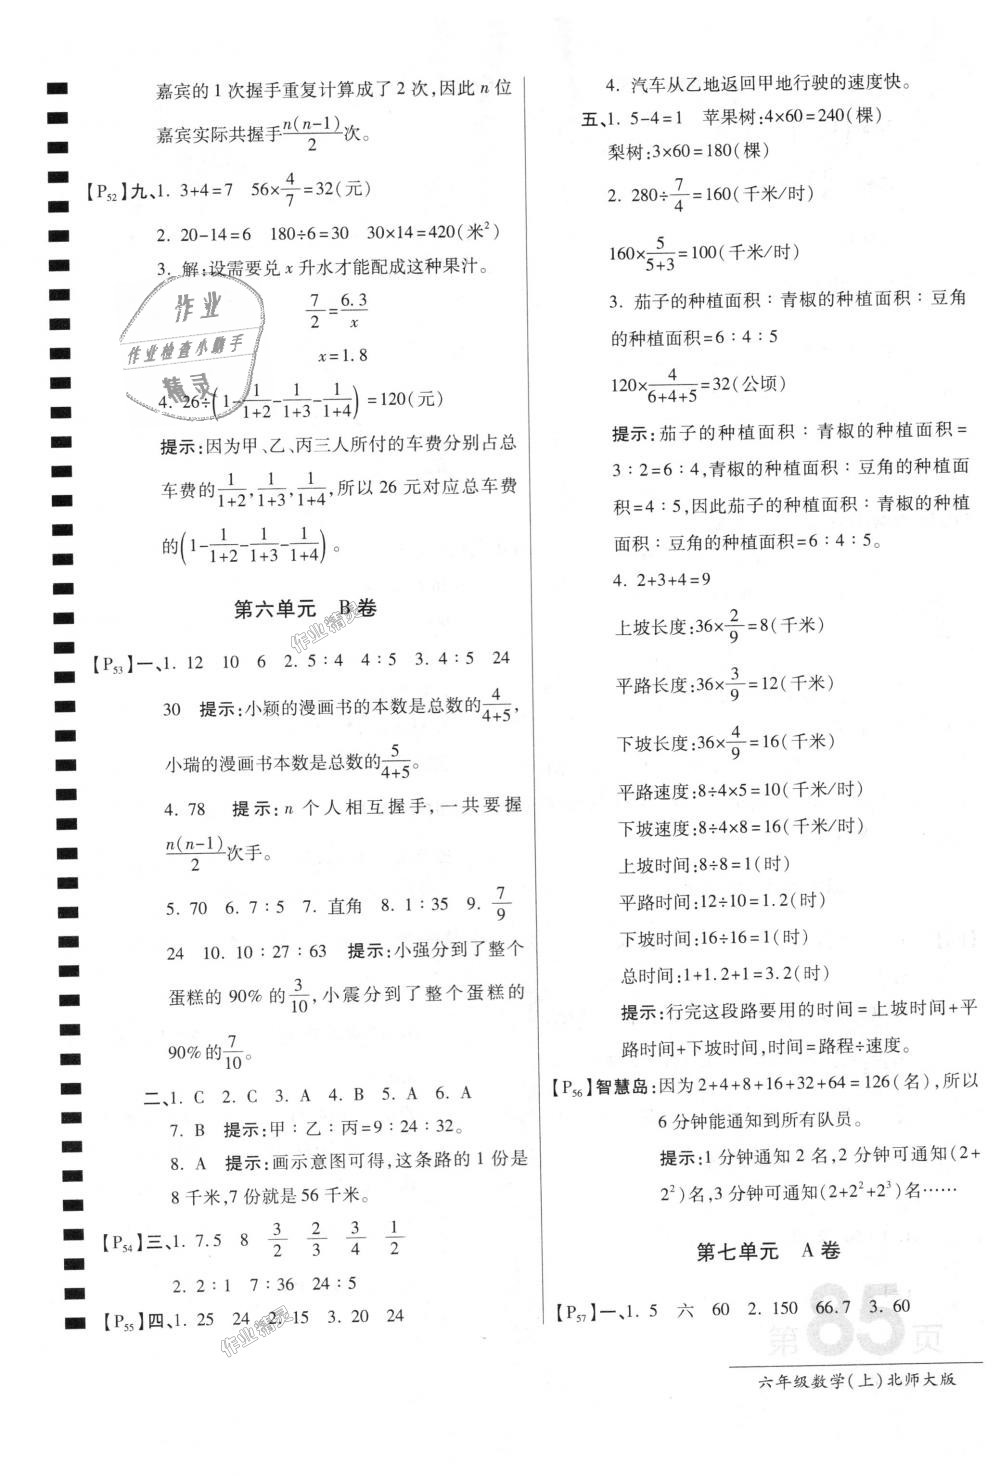 嘉宾的 1 次握手重复计算成了 2 次,因此 n 位
嘉宾实际共握手n(n-1)/2次。
【P52】九、1. 3+4=7 56×4/7=32(元)
2. 20-14=6 180÷6=30 30×14=420(米²)
3. 解:设需要兑 x 升水才能配成这种果汁。
7/2=6.3/x
x=1.8
4. 26÷(1-1/(1+2)-1/(1+3)-1/(1+4))=120(元)
提示:因为甲、乙、丙三人所付的车费分别占总
车费的1/(1+2),1/(1+3),1/(1+4),所以 26 元对应总车费
的(1-1/(1+2)-1/(1+3)-1/(1+4))。
第六单元 B卷
【P53】一、1. 12 10 6 2. 5∶4 4∶5 3. 4∶5 24
30 提示:小颖的漫画书的本数是总数的4/(4+5),
小瑞的漫画书本数是总数的5/(4+5)。
4. 78 提示:n 个人相互握手,一共要握
n(n-1)/2次手。
5. 70 6. 7∶5 7. 直角 8. 1∶35 9. 7/9
24 10. 10∶27∶63 提示:小强分到了整个
蛋糕的 90% 的3/10,小震分到了整个蛋糕的
90%的7/10。
二、1. C 2. C 3. A 4. B 5. A 6. A
7. B 提示:甲∶乙∶丙=9∶24∶32。
8. A 提示:画示意图可得,这条路的 1 份是
8 千米,7 份就是 56 千米。
【P54】三、1. 7.5 8 3/2 2/3 3/4 1/2
2. 2∶1 7∶36 24∶5
【P55】四、1. 25 24 2. 15 3. 20 24
4. 汽车从乙地返回甲地行驶的速度快。
五、1. 5-4=1 苹果树:4×60=240(棵)
梨树:3×60=180(棵)
2. 280÷7/4=160(千米/时)
160×5/(5+3)=100(千米/时)
3. 茄子的种植面积∶青椒的种植面积∶豆角
的种植面积=6∶4∶5
120×4/(6+4+5)=32(公顷)
提示:茄子的种植面积∶青椒的种植面积=
3∶2=6∶4,青椒的种植面积∶豆角的种植面
积=4∶5,因此茄子的种植面积∶青椒的种植
面积∶豆角的种植面积=6∶4∶5。
4. 2+3+4=9
上坡长度:36×2/9=8(千米)
平路长度:36×3/9=12(千米)
下坡长度:36×4/9=16(千米)
平路速度:8÷4×5=10(千米/时)
下坡速度:8÷4×8=16(千米/时)
上坡时间:8÷8=1(时)
平路时间:12÷10=1.2(时)
下坡时间:16÷16=1(时)
总时间:1+1.2+1=3.2(时)
提示:行完这段路要用的时间=上坡时间+平
路时间+下坡时间,时间=路程÷速度。
【P56】智慧岛:因为 2+4+8+16+32+64=126(名),所以
6 分钟能通知到所有队员。
提示:1 分钟通知 2 名,2 分钟可通知(2+
2²)名,3 分钟可通知(2+2²+2³)名……
第七单元 A卷
【P57】一、1. 5 六 60 2. 150 66.7 3. 60
第85页
六年级数学(上)北师大版
作业
作业检查小助手
精灵
作业精灵
作业精灵